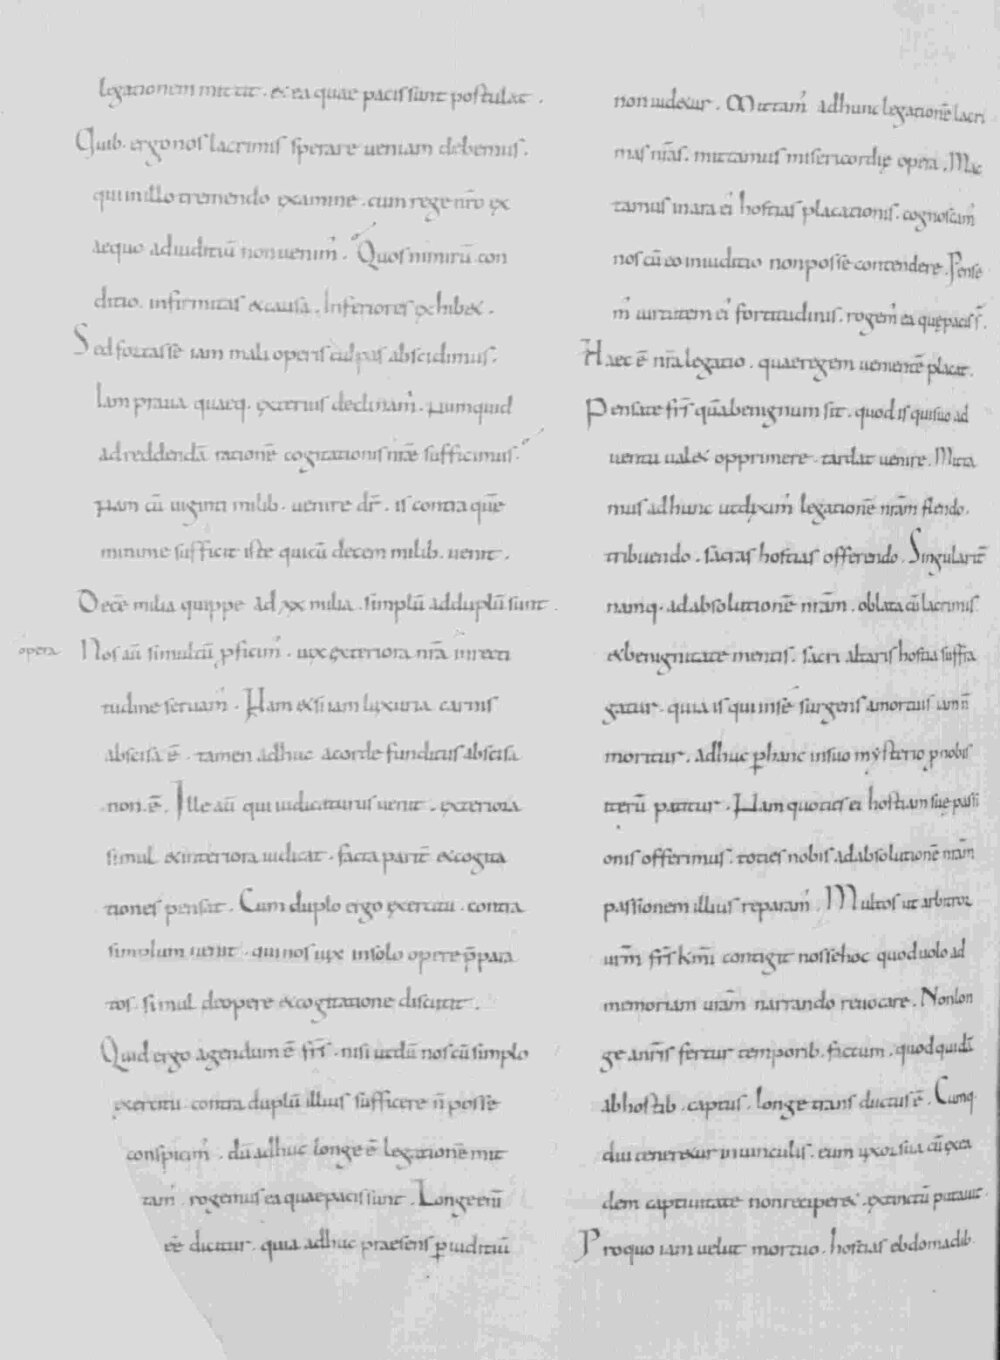 legationem mittit . et ea quae pacis sunt postulat .
Quib. ergo nos lacrimis sperare ueniam debemus .
qui in illo tremendo examine . cum rege nr̄o ex
aequo ad iuditiū non uenim̓ . Quos nimirū con
ditio . infirmitas et causa . Inferiores exhibet .
Sed fortasse iam mali operis culpas abscidimus .
Iam praua quaeq. exterius declinam̓ . Numquid
ad reddendā rationē cogitationis nr̄ae sufficimus .
Nam cū uiginti milib. uenire dr̄ . is contra quē
minime sufficit iste qui cū decem milib. uenit .
Decē milia quippe ad xx milia . simplū ad duplū sunt .
opera
Nos aū si multū ꝓficim̓ . uix exteriora nr̄a in recti
tudine seruam̓ . Nam etsi iam luxuria carnis
abscisa ē . tamen adhuc a corde funditus abscisa
non ē . Ille aū qui iudicaturus uenit . exteriora
simul et interiora iudicat . facta parit̄ et cogita
tiones pensat . Cum duplo ergo exercitu . contra
simplum uenit . qui nos uix in solo opere p̄para
tos . simul de opere et cogitatione discutit .
Quid ergo agendum ē fr̄s . nisi ut dū nos cū simplo
exercitu contra duplū illius sufficere n̄ posse
conspicim̓ . dū adhuc longe ē legationē mit
tam̓ . rogemus ea quae pacis sunt . Longe enī
eē dicitur . quia adhuc praesens ꝑ iuditiū
non uidetur . Mittam̓ ad hunc legationē lacri
mas nr̄as . mittamus misericordię opera . Mac
tamus in ara ei̓ hostias placationis . cognoscam̓
nos cū eo in iuditio non posse contendere . Pense
m̓ uirtutem ei̓ fortitudinis . rogem̓ ea quę pacis s̄ .
Haec ē nr̄a legatio . quae regem uenientē placat .
Pensate fr̄s quā benignum sit . quod is qui suo ad
uentu ualet opprimere . tardat uenire . Mitta
mus ad hunc ut dixim̓ legationē nr̄am flendo .
tribuendo . sacras hostias offerendo . Singularit̄
namq. ad absolutionē nr̄am . oblata cū lacrimis
et benignitate mentis . sacri altaris hostia suffra
gatur . quia is qui in se surgens a mortuis iam n̄
moritur . adhuc ꝑ hanc in suo mysterio ꝓ nobis
iterū patitur . Nam quoties ei hostiam suę passi
onis offerimus . toties nobis ad absolutionē nr̄am
passionem illius reparam̓ . Multos ut arbitror
ur̄m fr̄s km̄i contigit nosse hoc quod uolo ad
memoriam ur̄am narrando reuocare . Non lon
ge a nr̄is fertur temporib. factum . quod quidā
ab hostib. captus . longe trans ductus ē . Cumq.
diu teneretur in uinculis . eum uxor sua cū ex ea
dem captiuitate non reciperet . extinctū putauit .
Pro quo iam uelut mortuo . hostias ebdomadib.